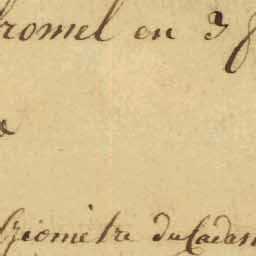 romel en 3 f
Géomètre du Cadas